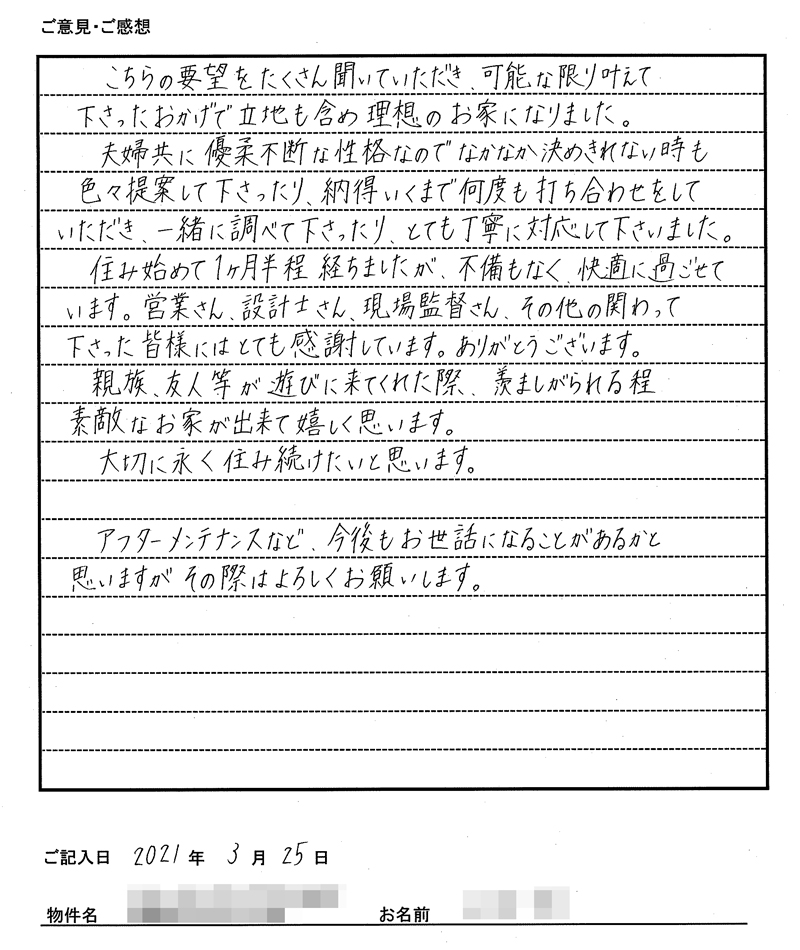 ご意見・ご感想
こちらの要望をたくさん聞いていただき、可能な限り叶えて
下さったおかげで立地も含め理想のお家になりました。
夫婦共に優柔不断な性格なのでなかなか決めきれない時も
色々提案して下さったり、納得いくまで何度も打ち合わせをして
いただき、一緒に調べて下さったり、とても丁寧に対応して下さいました。
住み始めて1ヶ月半程経ちましたが、不備もなく、快適に過ごせて
います。営業さん、設計士さん、現場監督さん、その他の関わって
下さった皆様にはとても感謝しています。ありがとうございます。
親族、友人等が遊びに来てくれた際、羨ましがられる程
素敵なお家が出来て嬉しく思います。
大切に永く住み続けたいと思います。
アフターメンテナンスなど、今後もお世話になることがあるかと
思いますがその際はよろしくお願いします。
ご記入日 2021年 3月 25日
物件名 お名前